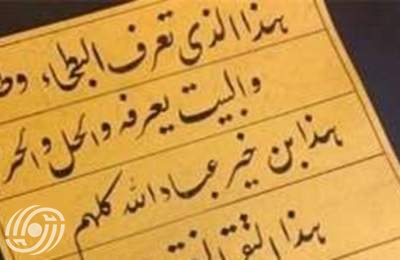 هذا الذي تعرف البطحاء
والبيت يعرفه والحل والحر
هذا ابن خير عباد الله كلهم
هذا التقي النقي